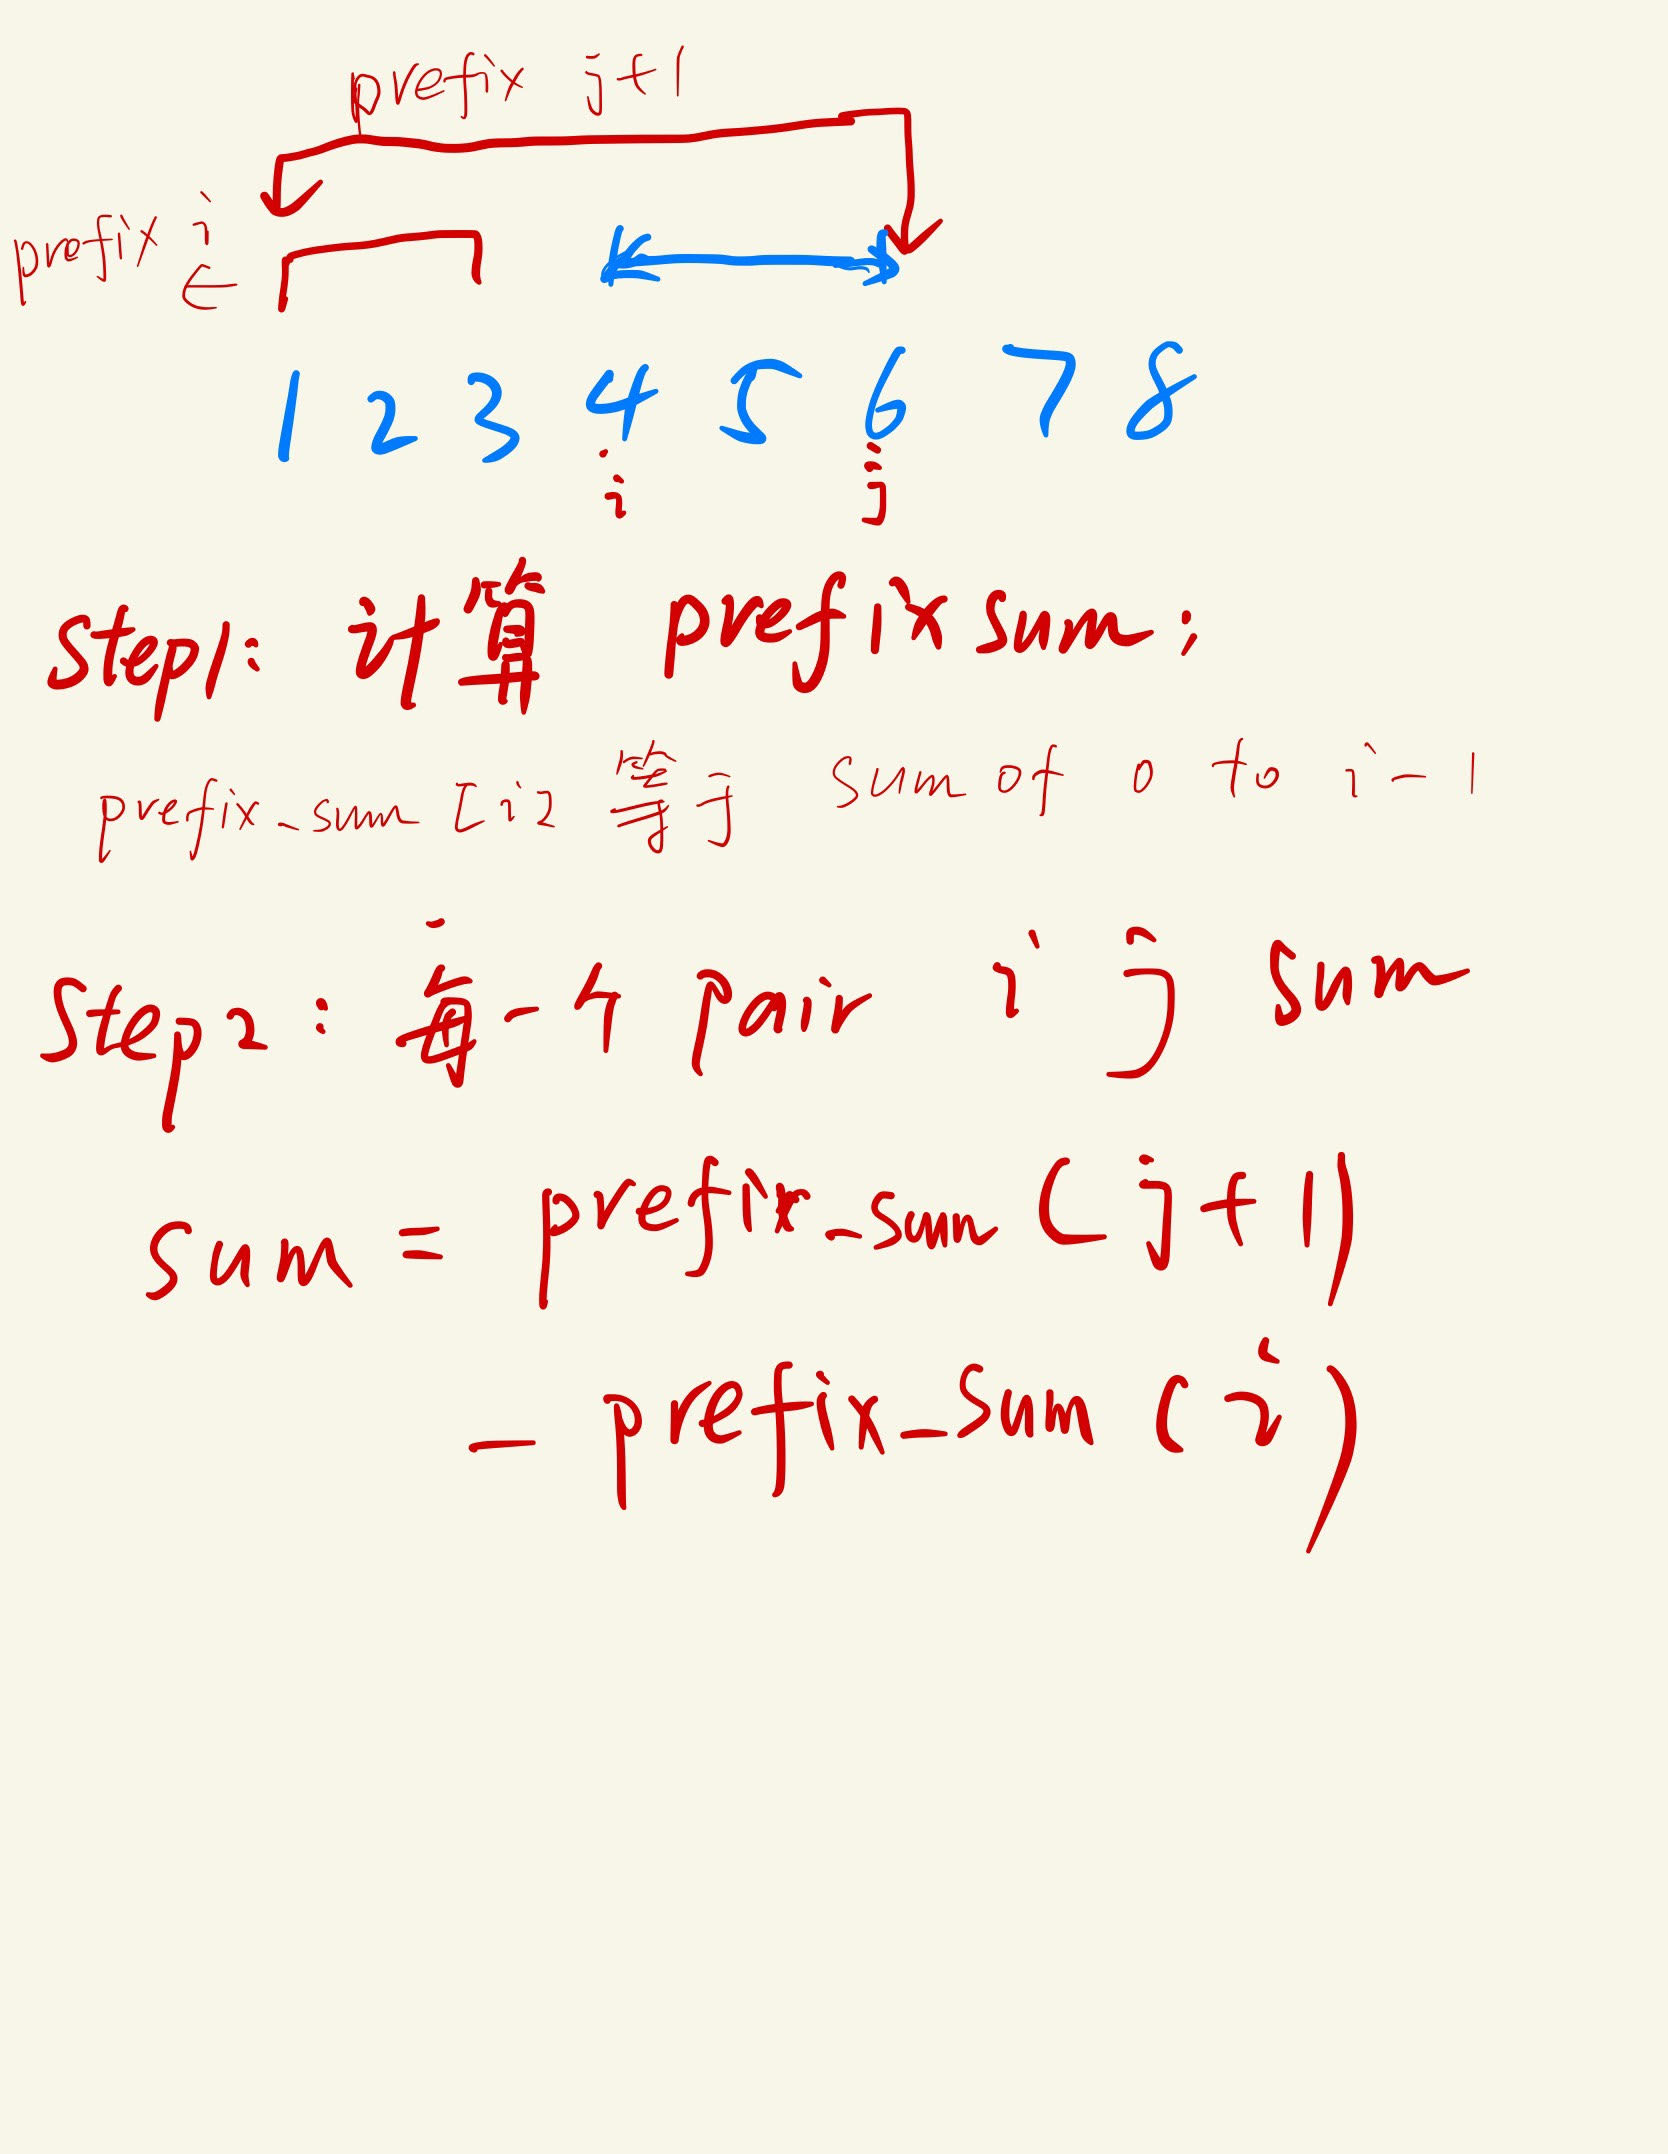 prefix j+1
prefix i
1 2 3 4 5 6 7 8
i j
Step1: 计算 prefix sum;
prefix_sum [i] 等于 sum of 0 to i-1
Step2: 每一个 pair i j sum
sum = prefix_sum (j+1)
- prefix_sum (i)